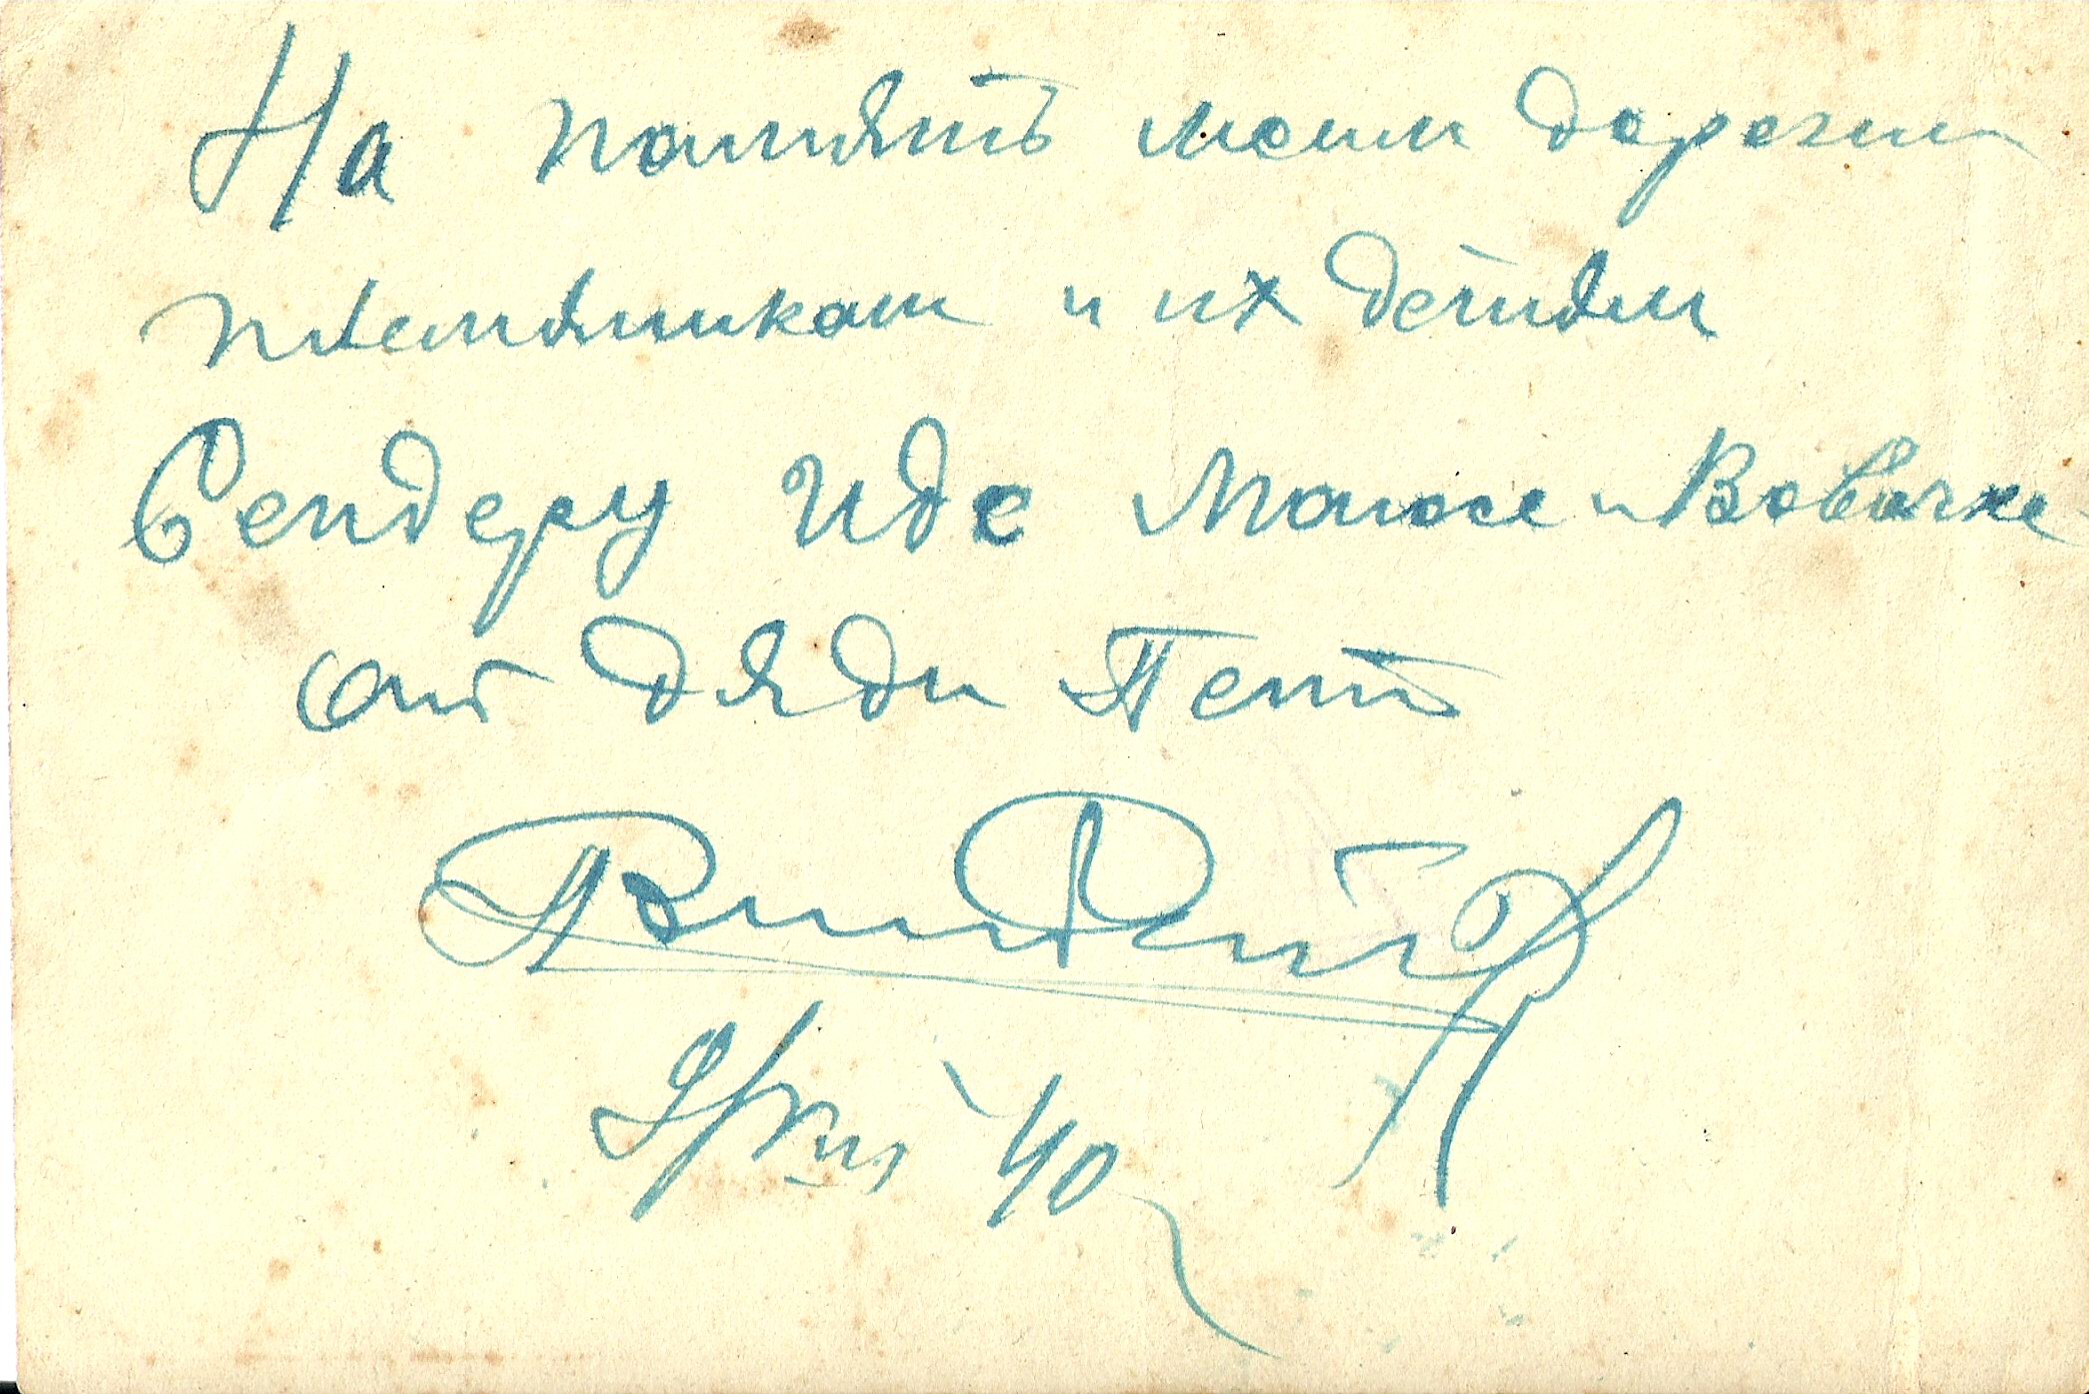 На память моим дорогим
племяникам и их детям
Сендеру Иде Монесе и Вовочке
от дяди Пети
9/VIII 40